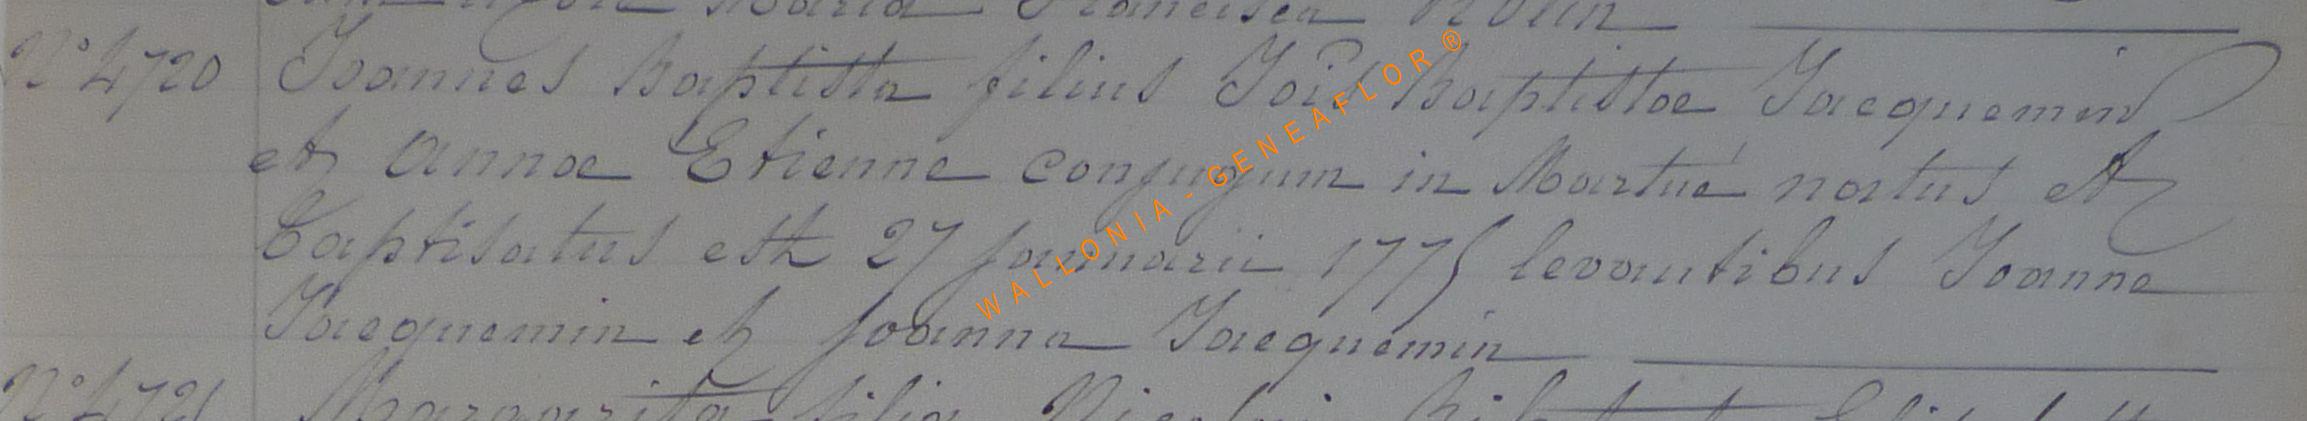 Maria Francisca Rolin
N° 4720 Joannes Baptista filius Jois Baptistae Jacquemin
et Annae Etienne conjugum in Martué natus et
baptisatus est 27 januarii 1775 levantibus Joanne
Jacquemin et Joanna Jacquemin
N° 4721 Margarita filia Nicolai
WALLONIA - GENEAFLOR ®